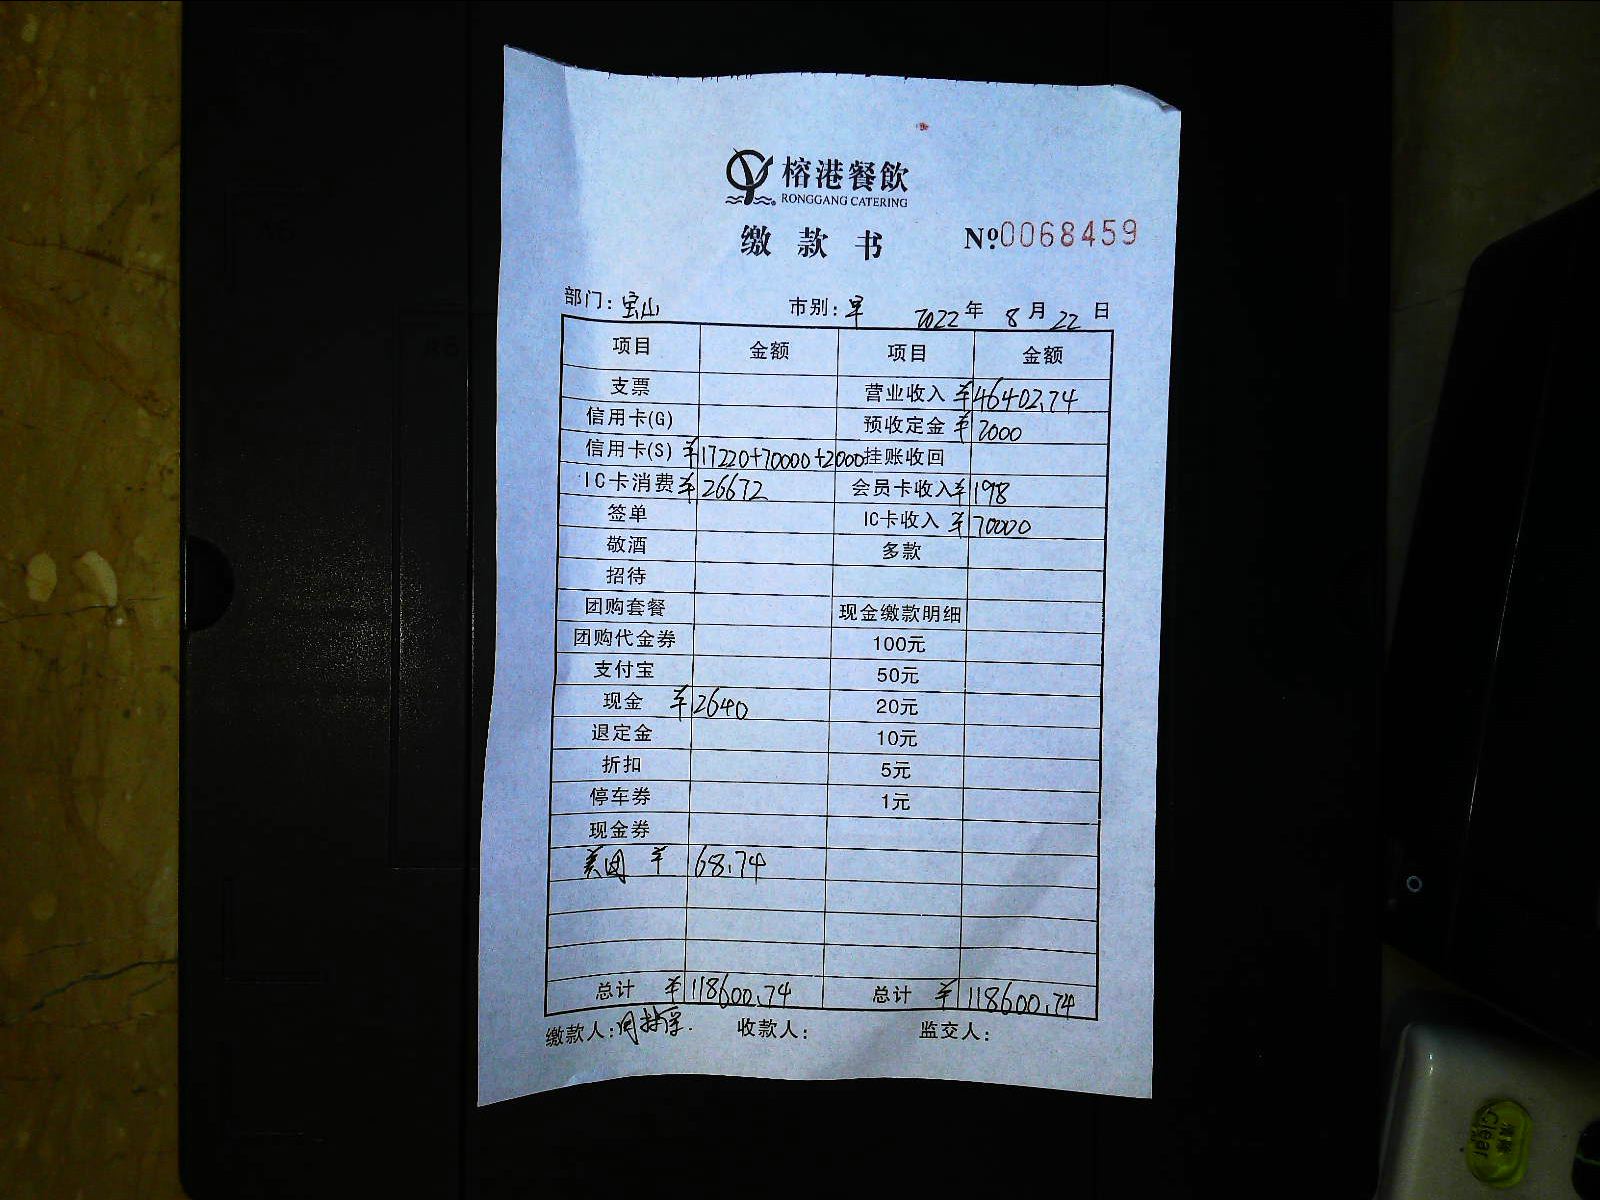 榕港餐飲
RONGGANG CATERING
缴款书 Nº0068459
部门：宝山 市别：早 2022年8月22日
项目 金额 项目 金额
支票 营业收入 ¥46402.74
信用卡(G) 预收定金 ¥2000
信用卡(S) ¥17220+70000+2000 挂账收回
IC卡消费 ¥26672 会员卡收入 ¥198
签单 IC卡收入 ¥70000
敬酒 多款
招待
团购套餐 现金缴款明细
团购代金券 100元
支付宝 50元
现金 ¥2640 20元
退定金 10元
折扣 5元
停车券 1元
现金券
美团 ¥68.74
总计 ¥118600.74 总计 ¥118600.74
缴款人： 收款人： 监交人：
A6
Clear